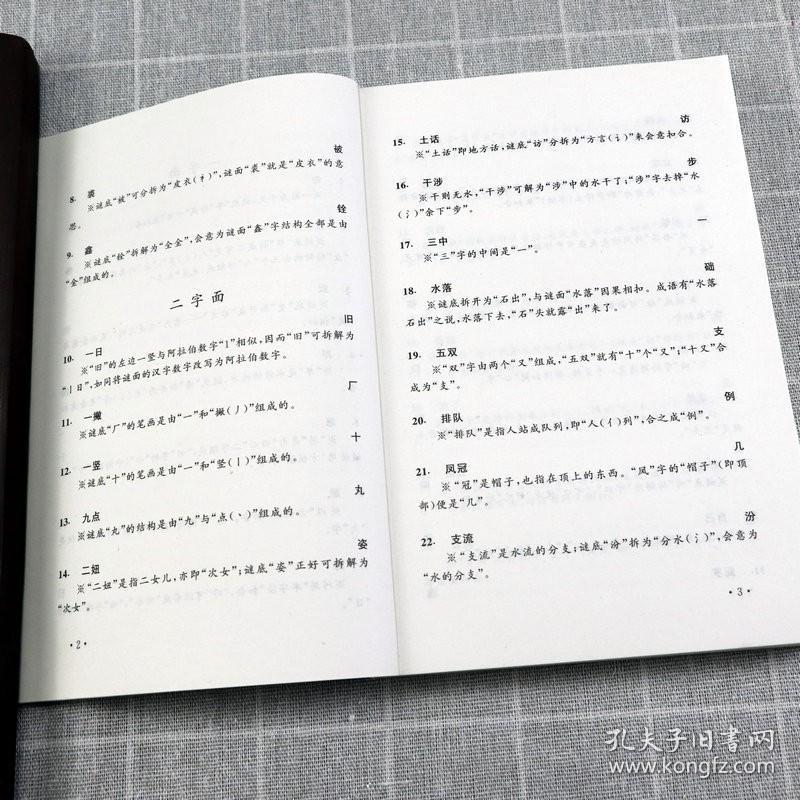 被
8. 裘
※谜底“被”可分拆为“皮衣(衤)”,谜面“裘”就是“皮衣”的意
思。
铨
9. 鑫
※谜底“铨”拆解为“全金”,会意为谜面“鑫”字结构全部是由
“金”组成的。
二字面
旧
10. 一日
※“旧”的左边一竖与阿拉伯数字“1”相似,因而“旧”可拆解为
“丨日”,如同将谜面的汉字数字改写为阿拉伯数字。
厂
11. 一撇
※谜底“厂”的笔画是由“一”和“撇(丿)”组成的。
十
12. 一竖
※谜底“十”的笔画是由“一”和“竖(丨)”组成的。
丸
13. 九点
※谜底“丸”的结构是由“九”与“点(丶)”组成的。
姿
14. 二妞
※“二妞”是指二女儿,亦即“次女”;谜底“姿”正好可拆解为
“次女”。
·2·
访
15. 土话
※“土话”即地方话,谜底“访”分拆为“方言(讠)”来会意扣合。
步
16. 干涉
※干则无水,“干涉”可解为“涉”中的水干了;“涉”字去掉“水
(氵)”余下“步”。
一
17. 三中
※“三”字的中间是“一”。
础
18. 水落
※谜底拆开为“石出”,与谜面“水落”因果相扣。成语有“水落
石出”之说,水落下去,“石”头就露“出”来了。
支
19. 五双
※“双”字由两个“又”组成,“五双”就有“十”个“又”;“十又”合
成为“支”。
例
20. 排队
※“排队”是指人站成队列,即“人(亻)列”,合之成“例”。
几
21. 凤冠
※“冠”是帽子,也指在顶上的东西。“凤”字的“帽子”(即顶
部)便是“几”。
汾
22. 支流
※“支流”是水流的分支;谜底“汾”拆为“分水(氵)”,会意为
“水的分支”。
·3·
孔夫子旧书网
www.kongfz.com